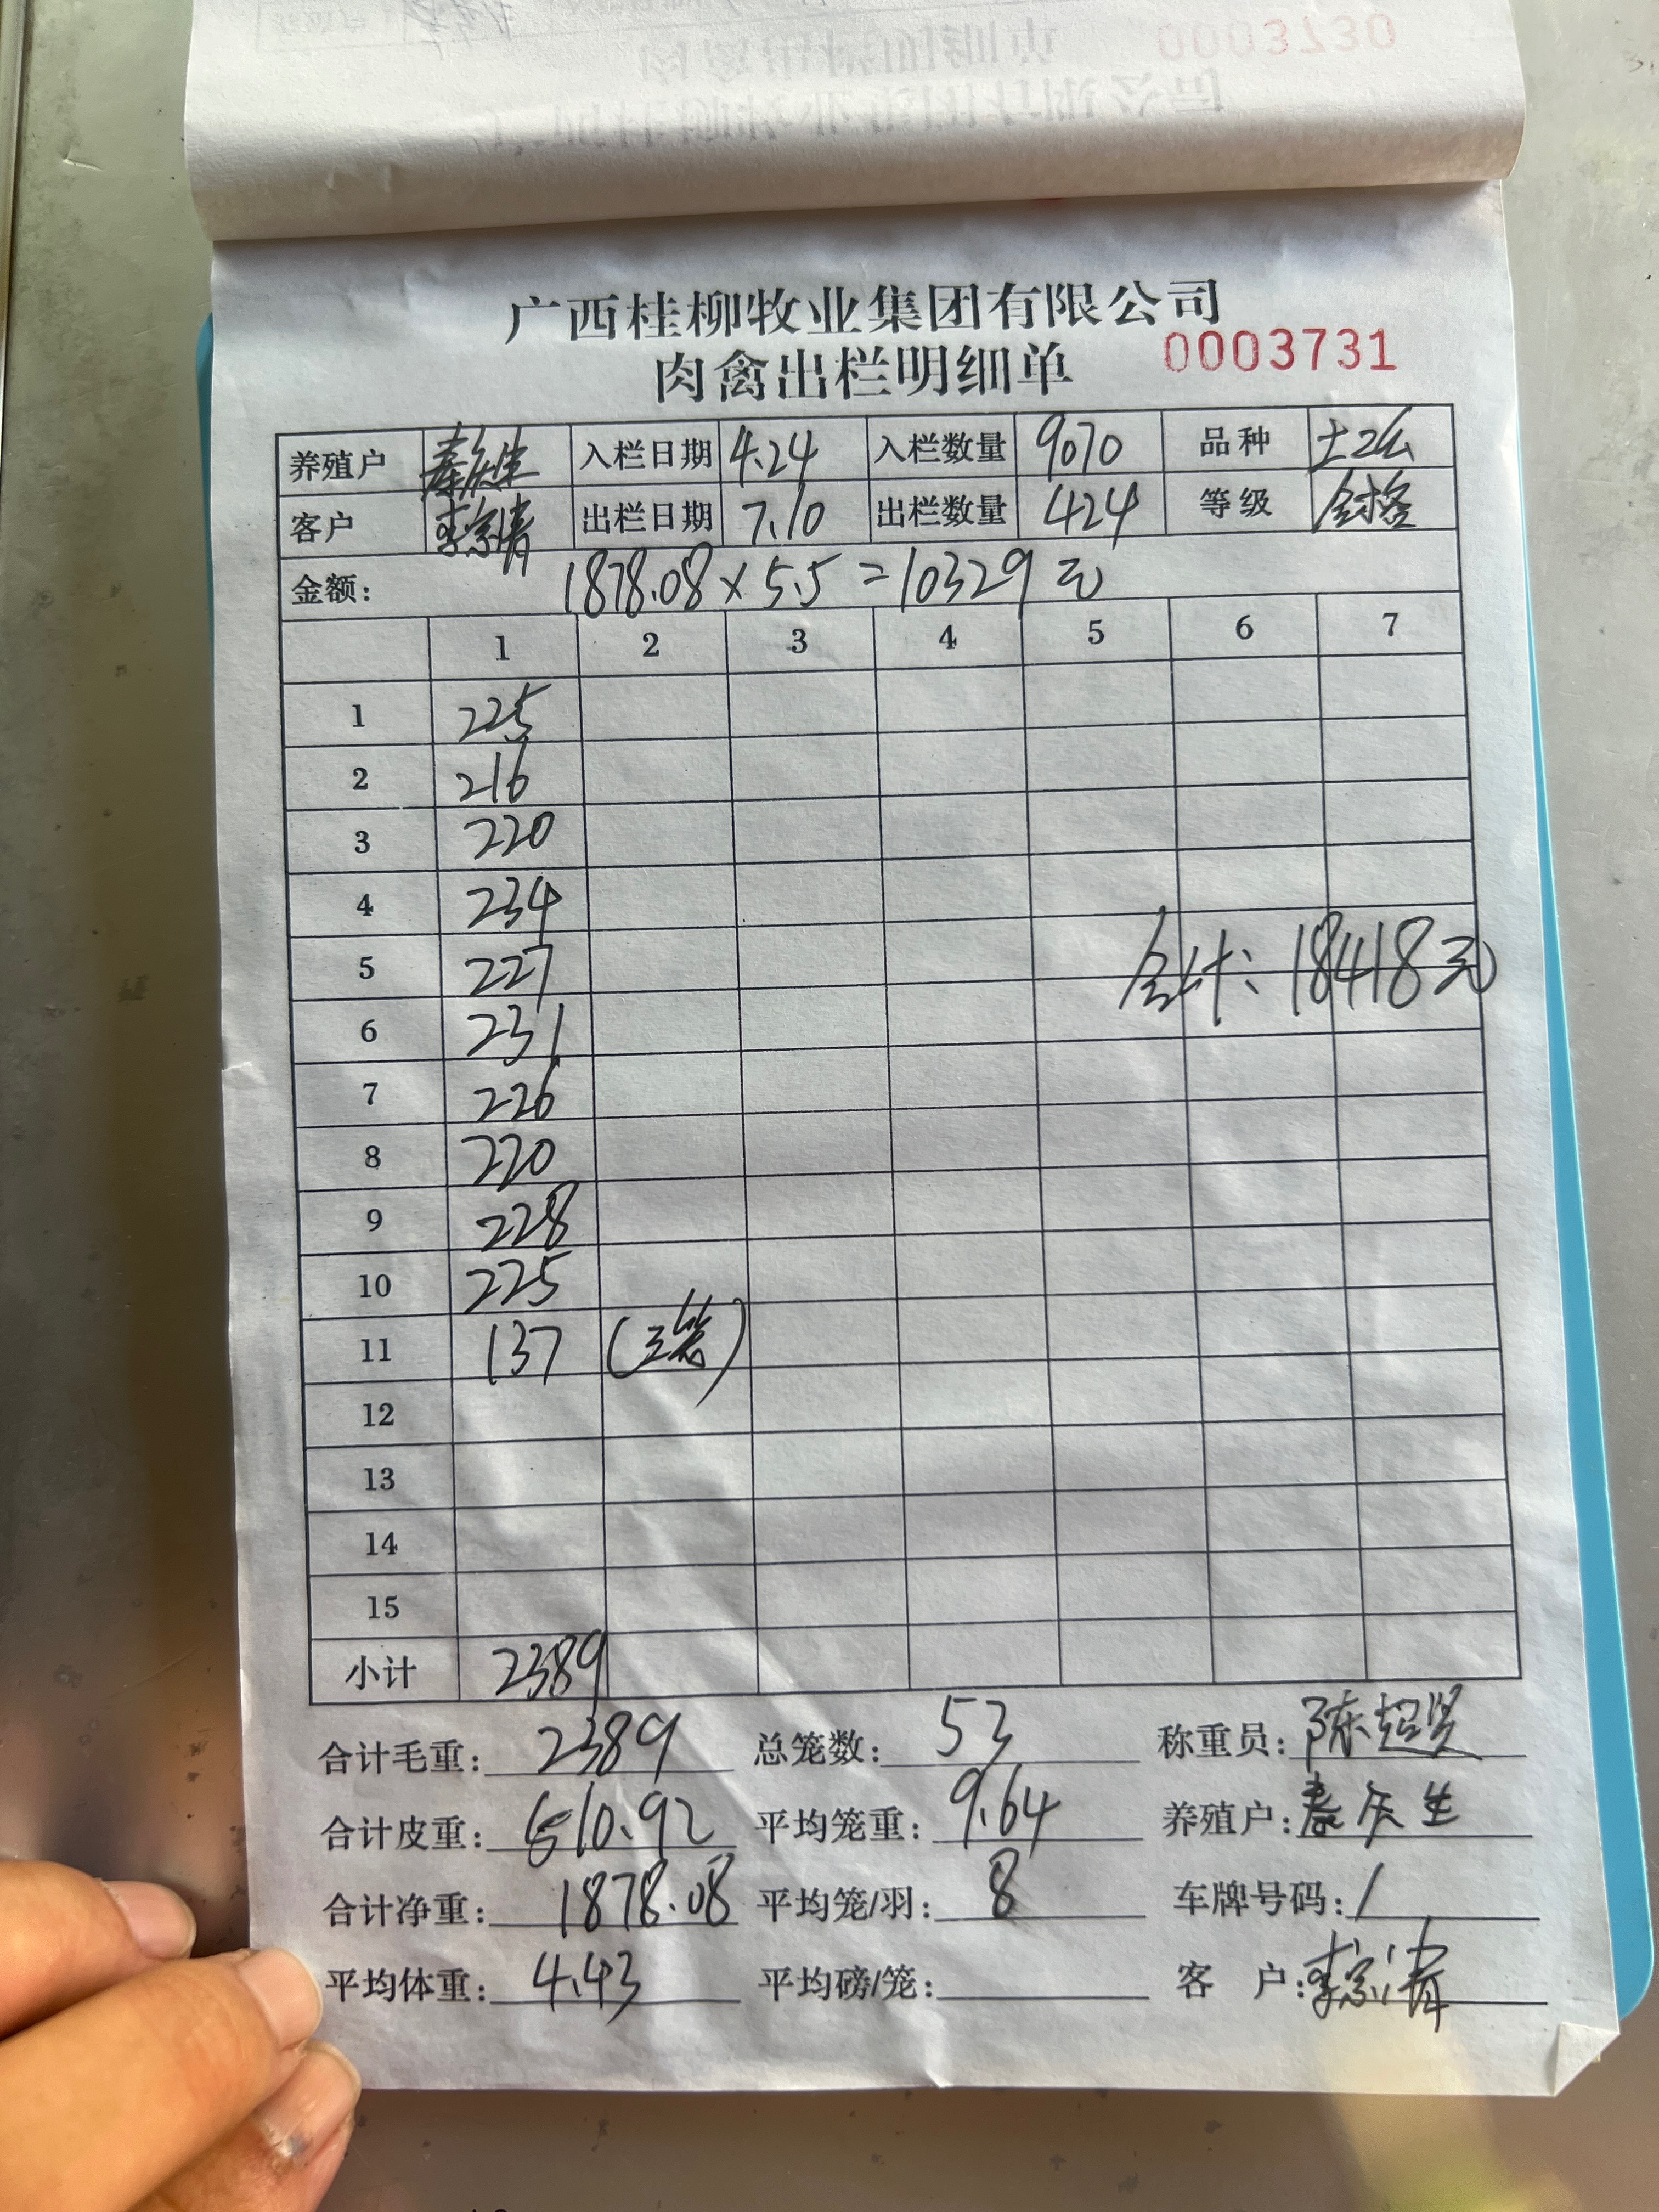 0003730
广西桂柳牧业集团有限公司
肉禽出栏明细单 0003731
养殖户 秦庆生 入栏日期 4.24 入栏数量 9070 品种 土2公
客户 李宗清 出栏日期 7.10 出栏数量 424 等级 合格
金额: 1878.08×5.5=10329元
1 2 3 4 5 6 7
1 225
2 216
3 220
4 234
5 227
合计: 18418元
6 231
7 226
8 220
9 228
10 225
11 137 (三笼)
12
13
14
15
小计 2389
合计毛重: 2389 总笼数: 53 称重员: 陈超贤
合计皮重: 510.92 平均笼重: 9.64 养殖户: 秦庆生
合计净重: 1878.08 平均笼/羽: 8 车牌号码: /
平均体重: 4.43 平均磅/笼: 客 户: 李宗清